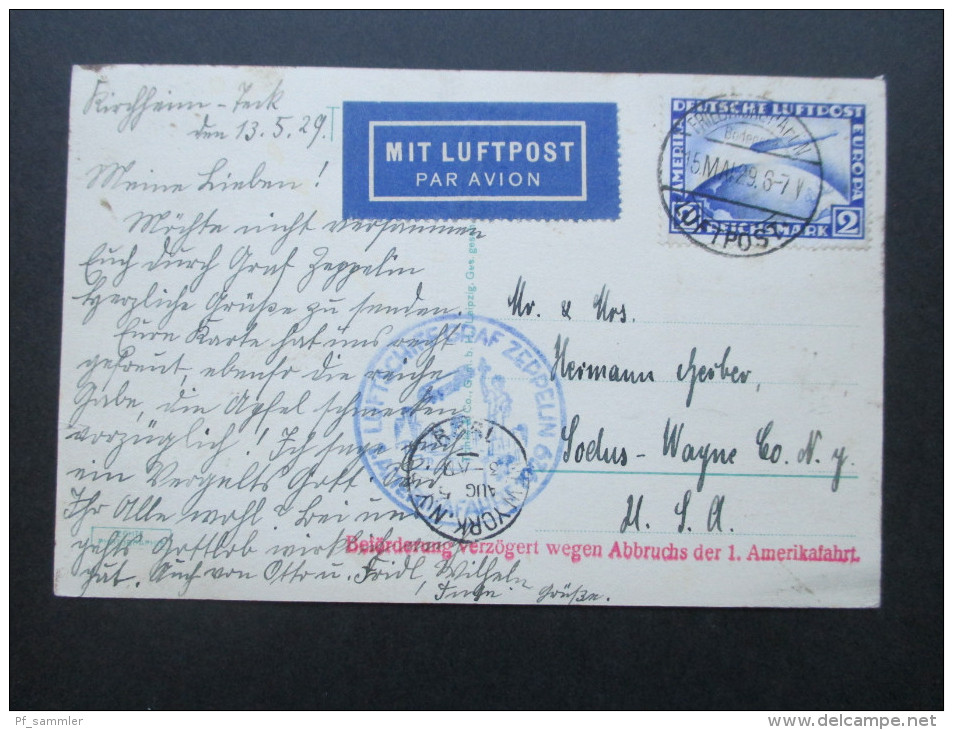 Kirchheim-Teck
den 13.5.29.
Meine Lieben!
Möchte nicht versäumen
Euch durch Graf Zeppelin
Herzliche Grüße zu senden.
Eure Karte hat uns recht
gefreut, ebenso die reiche
Gabe, die Äpfel schmecken
vorzüglich! Ich sage Euch
ein Vergelts Gott. Seid
Ihr Alle wohl? Bei uns
gehts Gottlob wirklich
gut. Auch von Otto u. Fridl, Wilhelm
Grüße.
MIT LUFTPOST
PAR AVION
DEUTSCHE LUFTPOST
AMERIKA
EUROPA
2 REICHSMARK 2
FRIEDRICHSHAFEN
Bodens
15.MAI 29.6-7
LUFTPOST
Mr. & Mrs.
Hermann Gerber,
Sodus-Wayne Co. N.Y.
U. S. A.
LUFTSCHIFF GRAF ZEPPELIN
AMERIKAFAHRT
NEW YORK, N.Y.
AUG 5
Leipzig. Ges. gesch.
Beförderung verzögert wegen Abbruchs der 1. Amerikafahrt.
Pf_sammler
www.delcampe.net